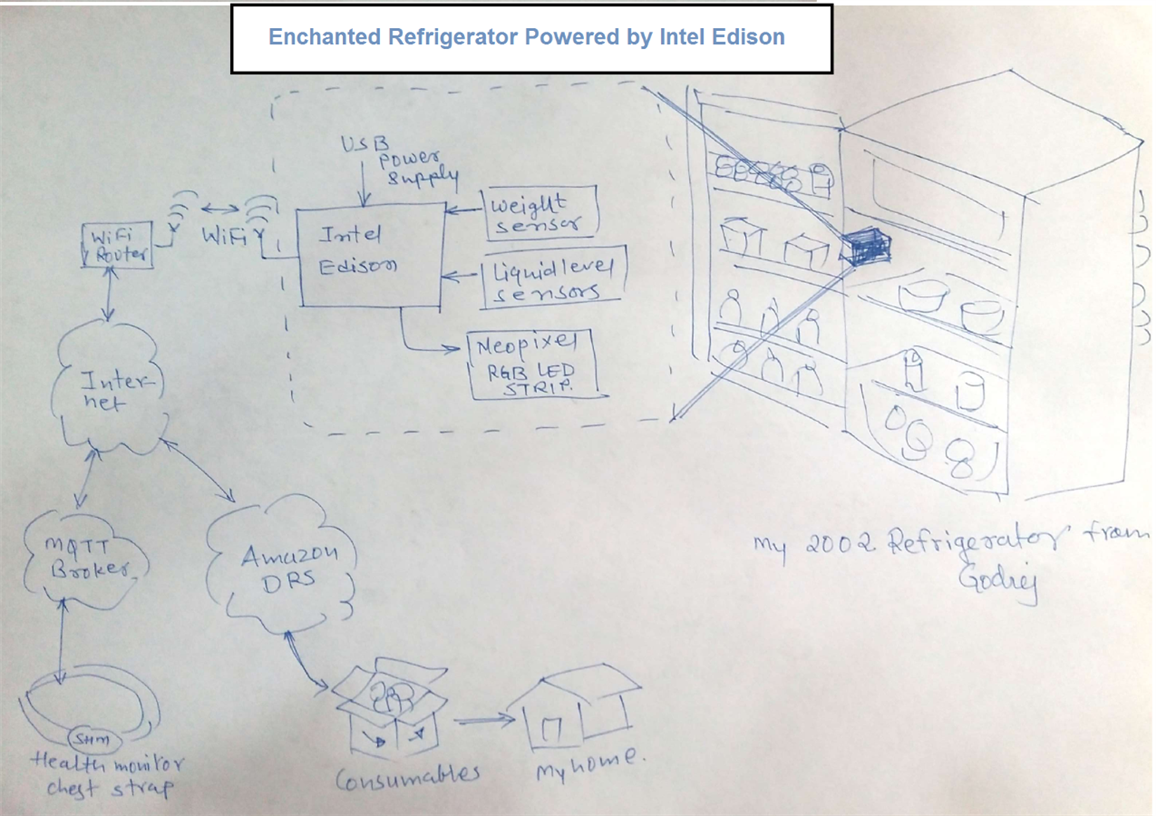 Enchanted Refrigerator Powered by Intel Edison
USB
Power
Supply
Weight
sensor
WiFi
WiFi
Router
Intel
Edison
Liquid level
sensors
Neopixel
RGB LED
STRIP.
Inter-
net
MQTT
Broker
Amazon
DRS
My 2002 Refrigerator from
Godrej
SHM
Health monitor
chest strap
Consumables
My home.